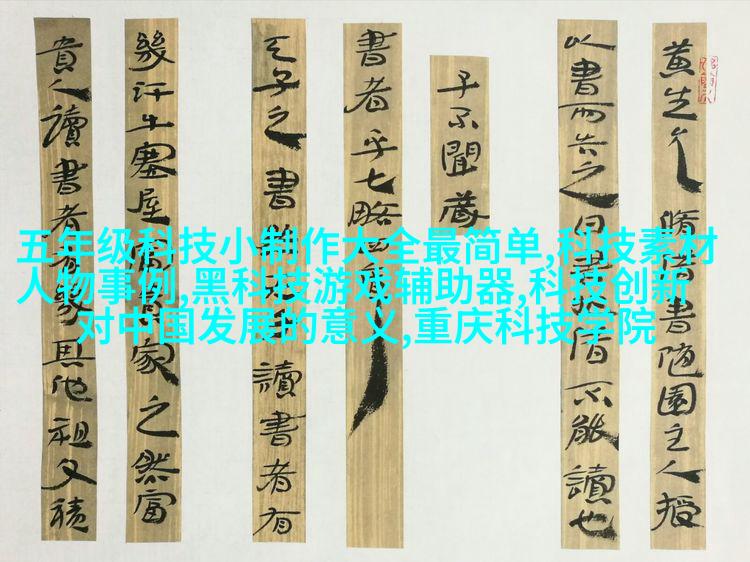 黄生允脩借書隨園主人授
以書而告之曰書非借不能讀也
子不聞藏
書者乎七略四
天子之書然天子讀書者有
幾汗牛塞屋富貴家之然富
貴人讀書者有幾其他祖父積
五年级科技小制作大全最简单,科技素材
人物事例,黑科技游戏辅助器,科技创新
对中国发展的意义,重庆科技学院